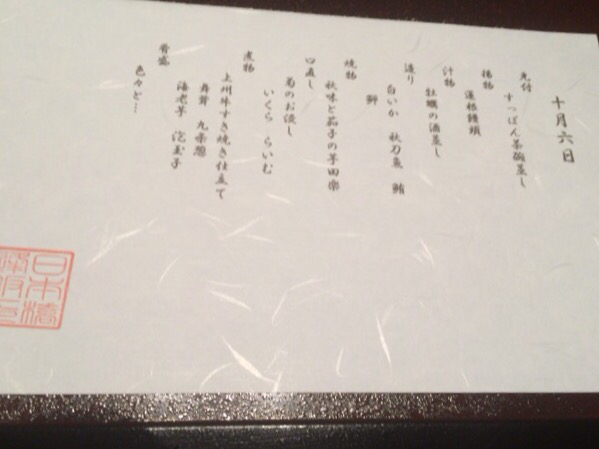 十月六日
先付
すっぽん茶碗蒸し
揚物
蓮根饅頭
汁物
牡蠣の酒蒸し
造り
白いか 秋刀魚 鮪
鰤
焼物
秋味と茄子の芋田楽
口直し
菊のお浸し
いくら らいむ
煮物
上州牛すき焼き仕立て
舞茸 九条葱
海老芋 泡玉子
肴盛
色々と…
日本橋